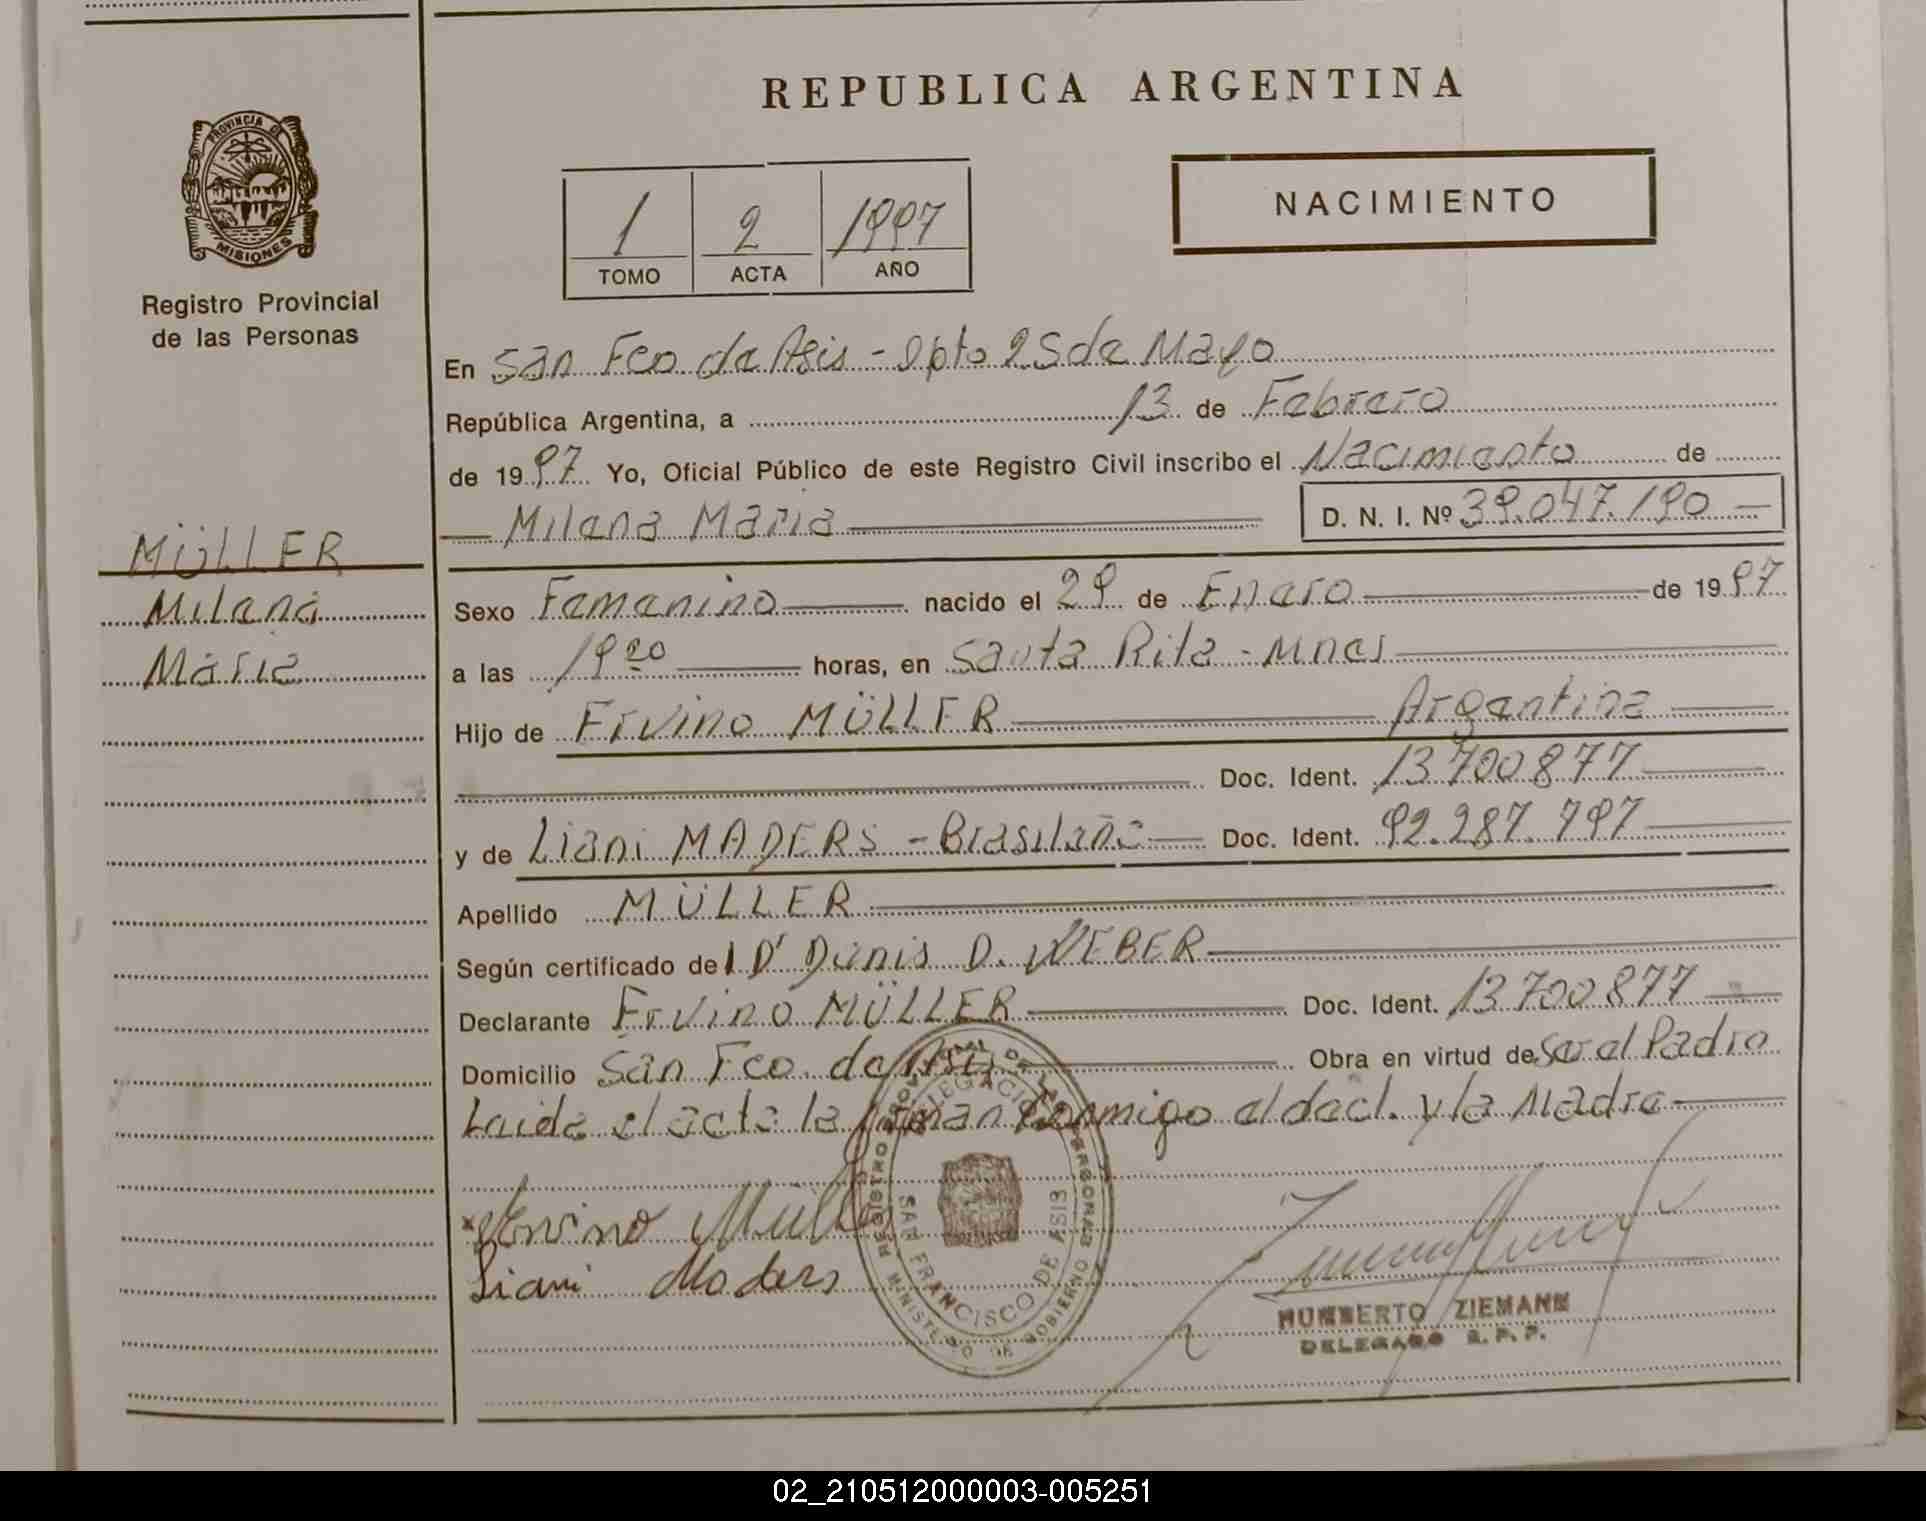 REPUBLICA ARGENTINA
PROVINCIA DE
MISIONES
Registro Provincial
de las Personas
NACIMIENTO
1 2 1997
TOMO ACTA AÑO
En San Fco de Asis - Dpto 25 de Mayo
República Argentina, a 13 de Febrero
de 1997 Yo, Oficial Público de este Registro Civil inscribo el Nacimiento de
Milena Maria D. N. I. Nº 39.047.190
MÜLLER
Milena
Maria
Sexo Femenino nacido el 29 de Enero de 1997
a las 19 20 horas, en Santa Rita - Mnes
Hijo de Ervino MÜLLER Argentina
Doc. Ident. 13.700.877
y de Liani MADERS - Brasileña Doc. Ident. 92.287.797
Apellido MÜLLER
Según certificado del Dr D. WEBER
Declarante Ervino MÜLLER Doc. Ident. 13.700.877
Domicilio San Fco. de Asis Obra en virtud de Ser el Padre
Leida el acta la firman Conmigo el decl. y la Madre
Ervino Müller
Liani Maders
REGISTRO PROVINCIAL DE LAS PERSONAS
DELEGACION
SAN FRANCISCO DE ASIS
MINISTERIO DE GOBIERNO
HUMBERTO ZIEMANN
DELEGADO R. P. P.
02_210512000003-005251